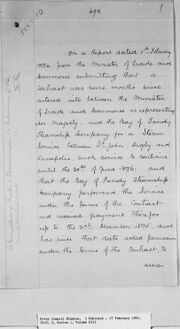 492
On a Report dated 5th February
1896 from the Minister of Trade and
Commerce submitting that a
Contract was some months since
entered into between the Minister
of Trade and Commerce as representing
Her Majesty and the Bay of Fundy
Steamship Company for a Steam
Service between St John, Digby and
Annapolis, such service to continue
until the 30th of June 1896; and
that the Bay of Fundy Steamship
Company performed the Service
under the terms of the Contract
and received payment therefor
up to the 31st December 1895, and
has since that date asked permission
under the terms of the Contract, to
Privy Council Minutes, 1 February - 17 February 1896.
(R.G. 2, Series 1, Volume